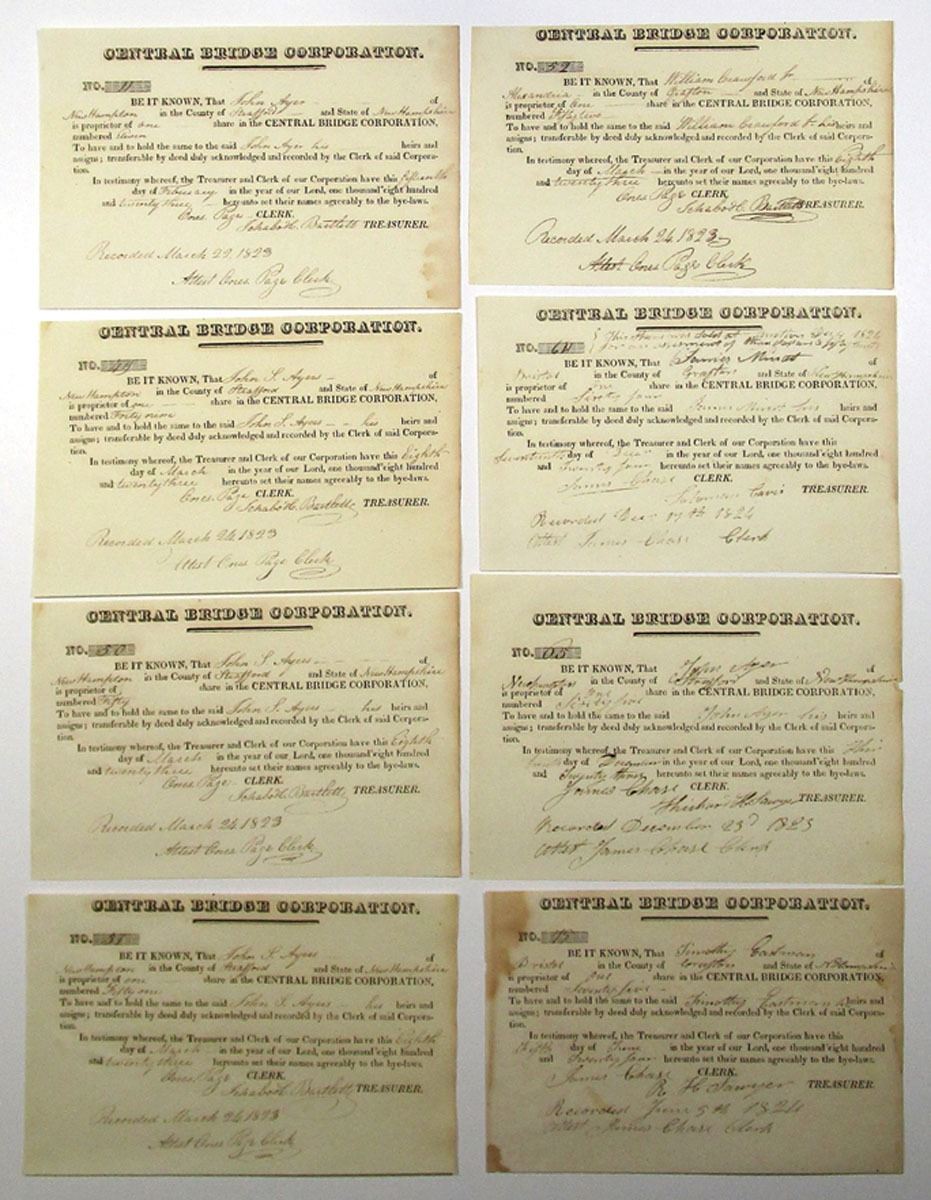 CENTRAL BRIDGE CORPORATION.
NO. 11
BE IT KNOWN, That John Ayer of
New Hampton in the County of Strafford and State of New Hampshire
is proprietor of one share in the CENTRAL BRIDGE CORPORATION,
numbered eleven
To have and to hold the same to the said John Ayer his heirs and
assigns; transferable by deed duly acknowledged and recorded by the Clerk of said Corpora-
tion.
In testimony whereof, the Treasurer and Clerk of our Corporation have this fifteenth
day of February in the year of our Lord, one thousand eight hundred
and twenty three hereunto set their names agreeably to the bye-laws.
Page CLERK.
Bartlett TREASURER.
Recorded March 22, 1823
Attest Page Clerk
CENTRAL BRIDGE CORPORATION.
NO. 49
BE IT KNOWN, That John S. Ayers of
New Hampton in the County of Strafford and State of New Hampshire
is proprietor of one share in the CENTRAL BRIDGE CORPORATION,
numbered Forty nine
To have and to hold the same to the said John S. Ayers his heirs and
assigns; transferable by deed duly acknowledged and recorded by the Clerk of said Corpora-
tion.
In testimony whereof, the Treasurer and Clerk of our Corporation have this Eighth
day of March in the year of our Lord, one thousand eight hundred
and twenty three hereunto set their names agreeably to the bye-laws.
Page CLERK.
Bartlett TREASURER.
Recorded March 24, 1823
Attest Page Clerk
CENTRAL BRIDGE CORPORATION.
NO. 50
BE IT KNOWN, That John S. Ayers of
New Hampton in the County of Strafford and State of New Hampshire
is proprietor of share in the CENTRAL BRIDGE CORPORATION,
numbered Fifty
To have and to hold the same to the said John S. Ayers his heirs and
assigns; transferable by deed duly acknowledged and recorded by the Clerk of said Corpora-
tion.
In testimony whereof, the Treasurer and Clerk of our Corporation have this Eighth
day of March in the year of our Lord, one thousand eight hundred
and twenty three hereunto set their names agreeably to the bye-laws.
Page CLERK.
Bartlett TREASURER.
Recorded March 24, 1823
Attest Page Clerk
CENTRAL BRIDGE CORPORATION.
NO. 51
BE IT KNOWN, That John S. Ayers of
New Hampton in the County of Strafford and State of New Hampshire
is proprietor of one share in the CENTRAL BRIDGE CORPORATION,
numbered Fifty one
To have and to hold the same to the said John S. Ayers his heirs and
assigns; transferable by deed duly acknowledged and recorded by the Clerk of said Corpora-
tion.
In testimony whereof, the Treasurer and Clerk of our Corporation have this Eighth
day of March in the year of our Lord, one thousand eight hundred
and twenty three hereunto set their names agreeably to the bye-laws.
Page CLERK.
Bartlett TREASURER.
Recorded March 24, 1823
Attest Page Clerk
CENTRAL BRIDGE CORPORATION.
NO. 52
BE IT KNOWN, That William Crawford Jr. of
Alexandria in the County of Grafton and State of New Hampshire
is proprietor of One share in the CENTRAL BRIDGE CORPORATION,
numbered Fifty two
To have and to hold the same to the said William Crawford Jr. his heirs and
assigns; transferable by deed duly acknowledged and recorded by the Clerk of said Corpora-
tion.
In testimony whereof, the Treasurer and Clerk of our Corporation have this Eighth
day of March in the year of our Lord, one thousand eight hundred
and twenty three hereunto set their names agreeably to the bye-laws.
Page CLERK.
Bartlett TREASURER.
Recorded March 24, 1823
Attest Page Clerk
CENTRAL BRIDGE CORPORATION.
This share was sold at auction 1824
for an assessment of
NO. 64
BE IT KNOWN, That James Minot of
Bristol in the County of Grafton and State of New Hampshire
is proprietor of one share in the CENTRAL BRIDGE CORPORATION,
numbered sixty four
To have and to hold the same to the said James Minot his heirs and
assigns; transferable by deed duly acknowledged and recorded by the Clerk of said Corpora-
tion.
In testimony whereof, the Treasurer and Clerk of our Corporation have this
Seventeenth day of Decr in the year of our Lord, one thousand eight hundred
and Twenty four hereunto set their names agreeably to the bye-laws.
James Chase CLERK.
Solomon Cavis TREASURER.
Recorded Dec 17th 1824
Attest James Chase Clerk
CENTRAL BRIDGE CORPORATION.
NO. 65
BE IT KNOWN, That John Ayer of
New Hampton in the County of Strafford and State of New Hampshire
is proprietor of One share in the CENTRAL BRIDGE CORPORATION,
numbered Sixty five
To have and to hold the same to the said John Ayer his heirs and
assigns; transferable by deed duly acknowledged and recorded by the Clerk of said Corpora-
tion.
In testimony whereof, the Treasurer and Clerk of our Corporation have this
day of December in the year of our Lord, one thousand eight hundred
and Twenty three hereunto set their names agreeably to the bye-laws.
James Chase CLERK.
Sawyer TREASURER.
Recorded December 23d 1823
Attest James Chase Clerk
CENTRAL BRIDGE CORPORATION.
NO. 75
BE IT KNOWN, That Timothy Eastman of
Bristol in the County of Grafton and State of N Hampshire
is proprietor of One share in the CENTRAL BRIDGE CORPORATION,
numbered Seventy five
To have and to hold the same to the said Timothy Eastman heirs and
assigns; transferable by deed duly acknowledged and recorded by the Clerk of said Corpora-
tion.
In testimony whereof, the Treasurer and Clerk of our Corporation have this
day of June in the year of our Lord, one thousand eight hundred
and Twenty four hereunto set their names agreeably to the bye-laws.
James Chase CLERK.
R. H. Sawyer TREASURER.
Recorded June 9th 1824
Attest James Chase Clerk